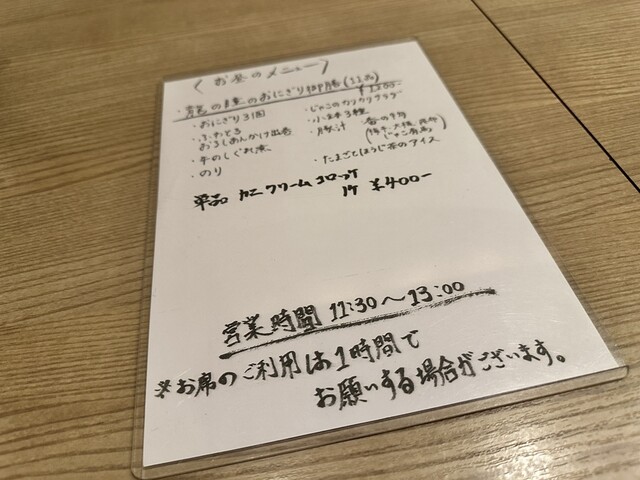 〈お昼のメニュー〉
・龍の隠のおにぎり御膳(11品)
¥1,200-
・おにぎり3個
・ふわとろ
おろしあんかけ出巻
・牛のしぐれ煮
・のり
・じゃこのカリカリサラダ
・小鉢3種
・豚汁
・たまごとほうじ茶のアイス
単品 カニクリームコロッケ
1ケ ¥400-
営業時間 11:30〜13:00
※お席のご利用は1時間で
お願いする場合がございます。